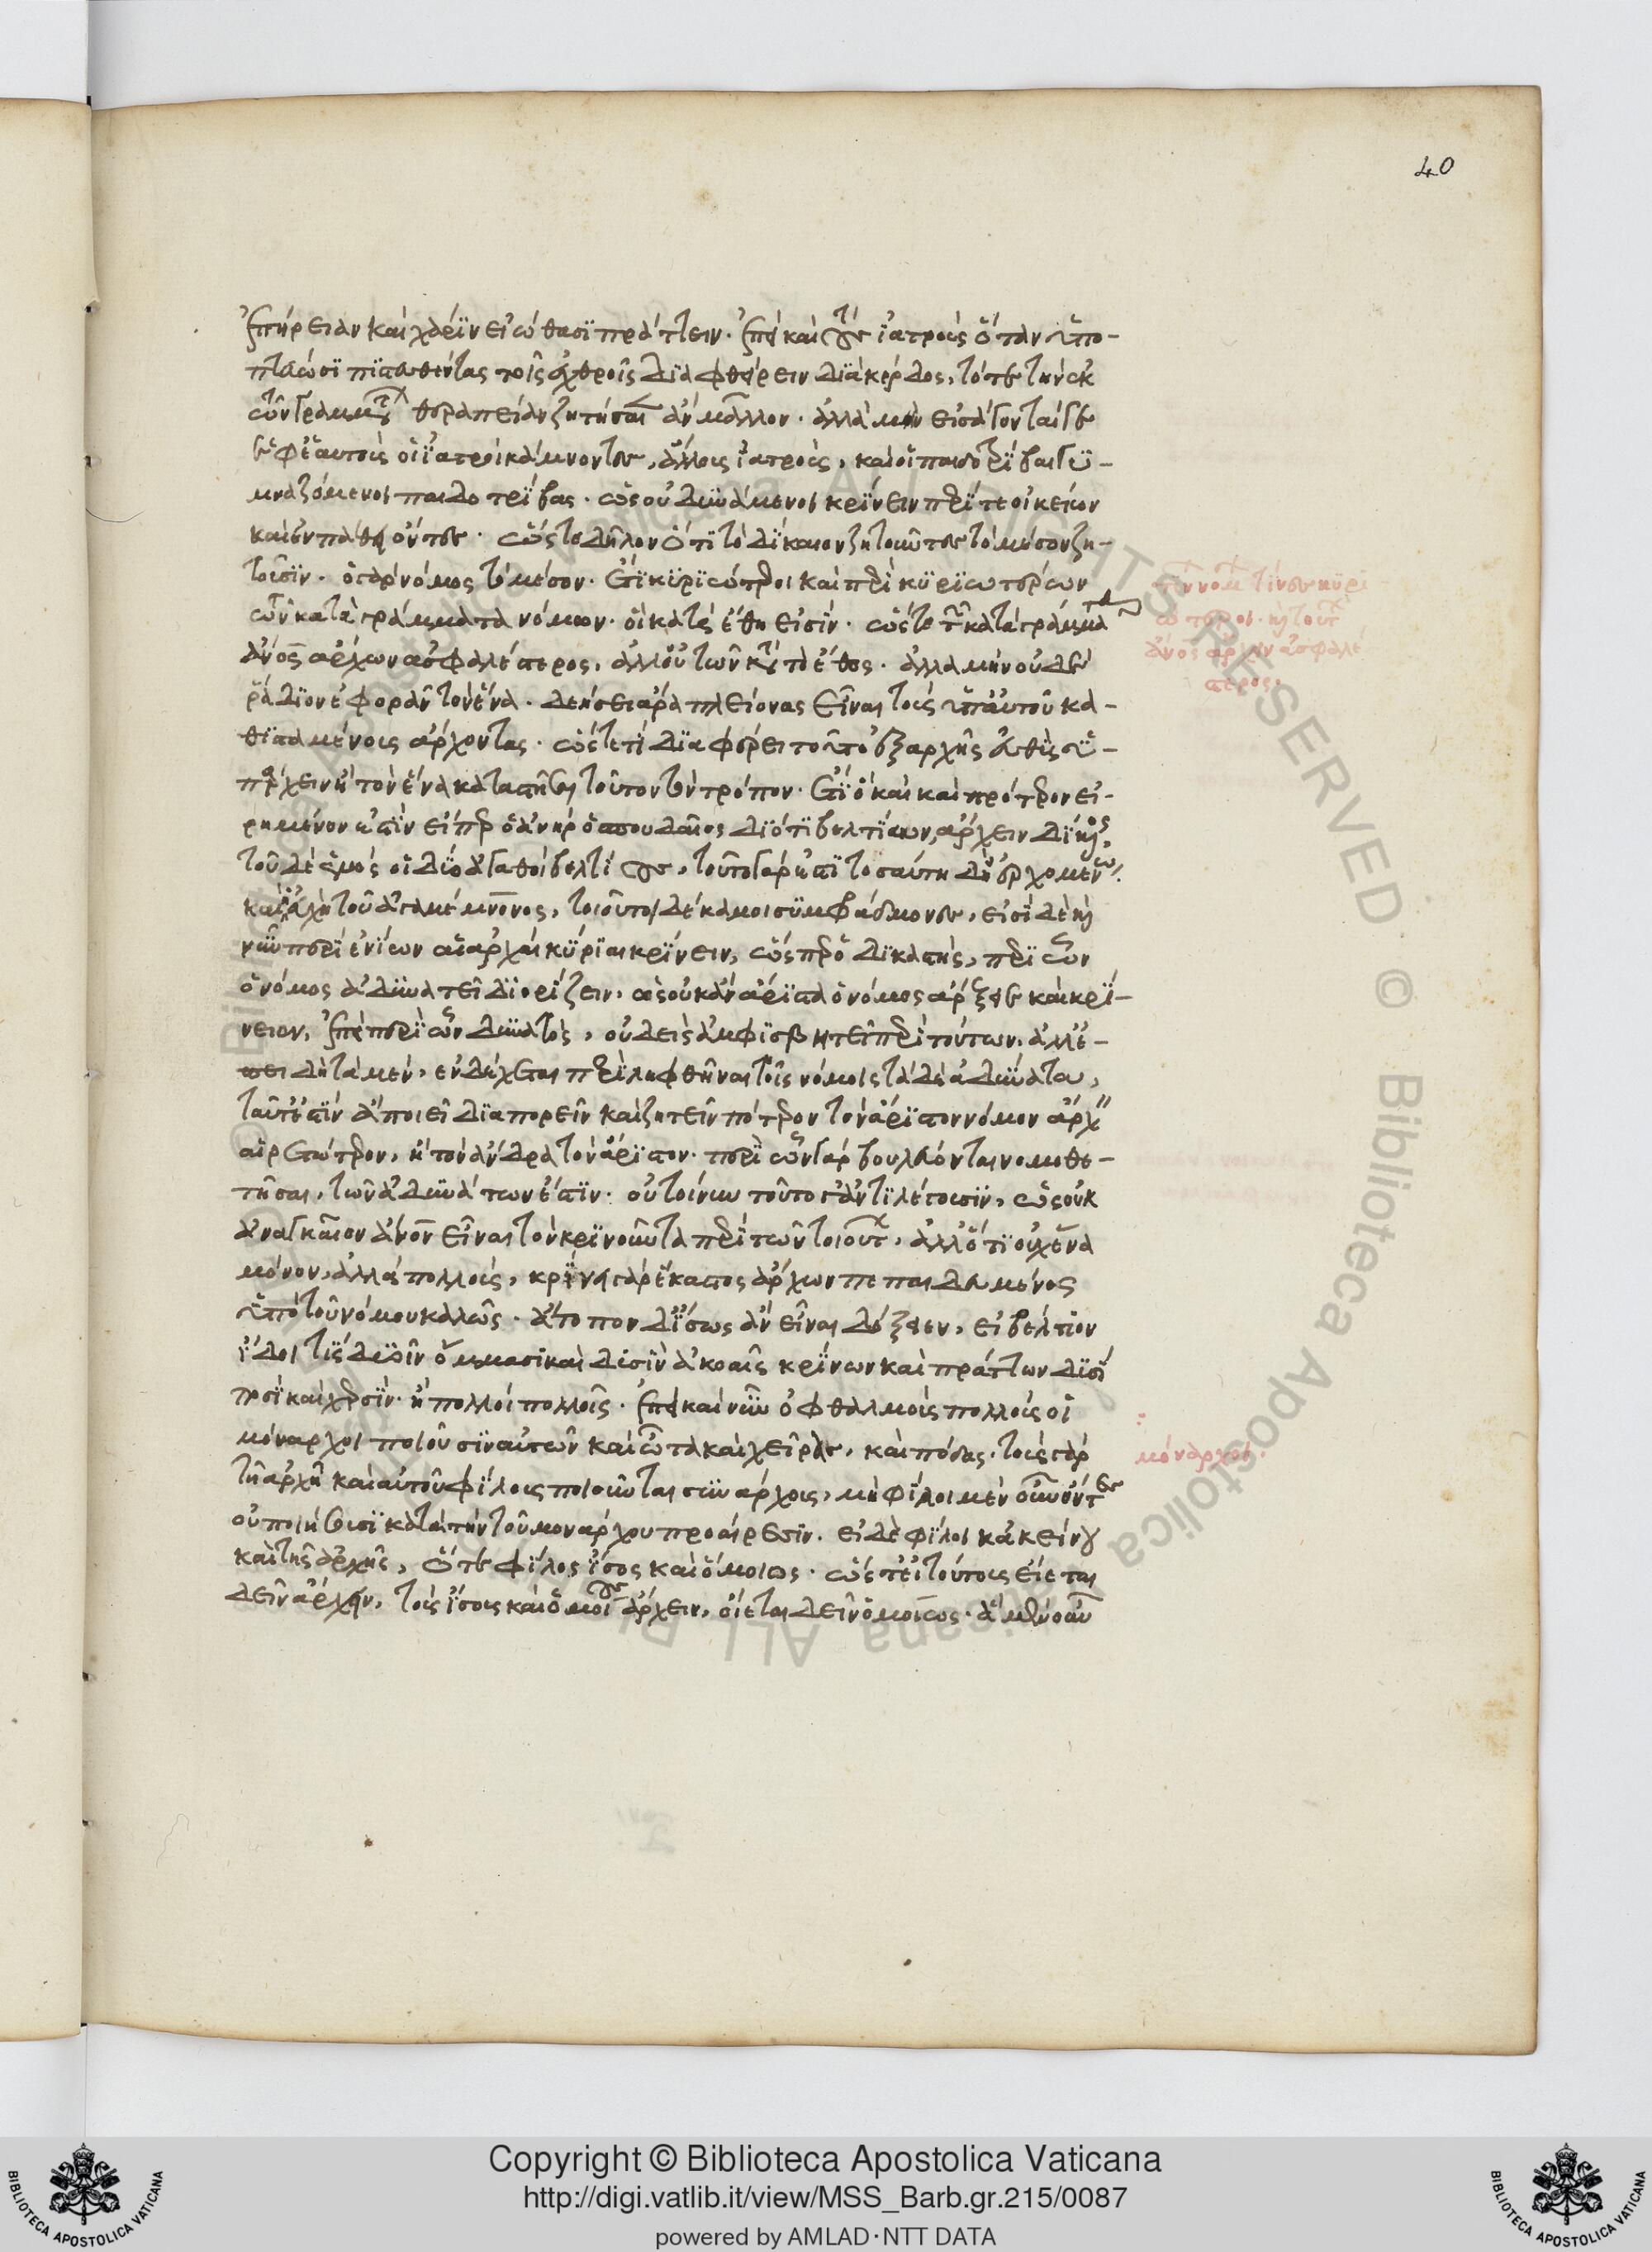 40
ἐπήρειαν καὶ χάριν εἰώθασι πράττειν· ἐπεὶ καὶ τοὺς ἰατροὺς ὅταν ὑπο-
πτεύωσι πιστευθέντας τοῖς ἐχθροῖς διαφθείρειν διὰ κέρδος, τότε τὴν ἐκ
τῶν γραμμάτων θεραπείαν ζητήσαιεν ἂν μᾶλλον· ἀλλὰ μὴν εἰσάγονταί γε
ἐφ' ἑαυτοὺς οἱ ἰατροὶ κάμνοντες, ἄλλους ἰατρούς, καὶ οἱ παιδοτρίβαι γυ-
μναζόμενοι παιδοτρίβας· ὡς οὐ δυνάμενοι κρίνειν περί τε οἰκείων
καὶ ἐν πάθει ὄντες· ὥστε δῆλον ὅτι τὸ δίκαιον ζητοῦντες τὸ μέσον ζη-
τοῦσιν· ὁ γὰρ νόμος τὸ μέσον· ἔτι κυριώτεροι καὶ περὶ κυριωτέρων
τῶν κατὰ γράμματα νόμων· οἱ κατὰ ἔθη εἰσίν· ὥστε τῶν κατὰ γράμματα
ἄνος ἄρχων ἀσφαλέστερος, ἀλλ' οὐ τῶν κατὰ τὸ ἔθος· ἀλλὰ μὴν οὐδὲ
ῥάδιον ἐφορᾶν τὸν ἕνα· δεήσει ἄρα πλείονας εἶναι τοὺς ὑπ' αὐτοῦ κα-
θισταμένους ἄρχοντας· ὥστε τί διαφέρει τοῦτο ἐξ αρχῆς εὐθὺς ὑ-
πάρχειν ἢ τὸν ἕνα καταστῆσαι τοῦτον τὸν τρόπον· ἔτι ὃ καὶ καὶ πρότερον εἰ-
ρημένον ἐστὶν εἴπερ ὁ ἀνὴρ ὁ σπουδαῖος διότι βελτίων, ἄρχειν δίκαιος,
τοῦ δὲ ἑνὸς οἱ δύο ἀγαθοὶ βελτίους, τοῦτο γάρ ἐστι τὸ σύν τε δύ' ἐρχομένω.
καὶ εὐχὴ τοῦ ἀγαμέμνονος, τοιοῦτοι δέκα μοι συμφράδμονες, εἰσὶ δὲ καὶ
νῦν περὶ ἐνίων αἱ ἀρχαὶ κύριαι κρίνειν, ὥσπερ ὁ δικαστής, περὶ ὧν
ὁ νόμος ἀδυνατεῖ διορίζειν, ὡς οὐκ ἂν ἄριστα ὁ νόμος ἄρξειε καὶ κρί-
νειεν, ἐπεὶ περὶ ὧν δυνατός, οὐδεὶς ἀμφισβητεῖ περὶ τούτων, ἀλλ' ἐ-
πειδὴ τὰ μὲν, ἐνδέχεται περιληφθῆναι τοῖς νόμοις τὰ δὲ ἀδύνατα,
ταῦτ' ἐστὶν ἃ ποιεῖ διαπορεῖν καὶ ζητεῖν πότερον τὸν ἄριστον νόμον ἄρχειν
αἱρετώτερον, ἢ τὸν ἄνδρα τὸν ἄριστον· περὶ ὧν γὰρ βουλεύονται νομοθε-
τῆσαι, τῶν ἀδυνάτων ἐστίν· οὐ τοίνυν τοῦτο γ' ἀντιλέγουσιν, ὡς οὐκ
ἀναγκαῖον ἄνον εἶναι τὸν κρινοῦντα περὶ τῶν τοιούτων, ἀλλ' ὅτι οὐχ ἕνα
μόνον, ἀλλὰ πολλούς, κρίνει γὰρ ἕκαστος ἄρχων πεπαιδευμένος
ὑπὸ τοῦ νόμου καλῶς· ἄτοπον δ' ἴσως ἂν εἶναι δόξειεν, εἰ βέλτιον
ἴδοι τὶς δυοῖν ὄμμασι καὶ δυσὶν ἀκοαῖς κρίνων καὶ πράττων δυσὶ
ποσὶ καὶ χερσίν· ἢ πολλοὶ πολλοῖς· ἐπεὶ καὶ νῦν ὀφθαλμοὺς πολλοὺς οἱ
μόναρχοι ποιοῦσιν αὑτῶν καὶ ὦτα καὶ χεῖρας, καὶ πόδας· τοὺς γὰρ
τῇ ἀρχῇ καὶ αὐτοῦ φίλους ποιοῦνται συνάρχους, μὴ φίλοι μὲν οὖν ὄντες
οὐ ποιήσουσι κατὰ τὴν τοῦ μονάρχου προαίρεσιν. εἰ δὲ φίλοι κἀκείνου
καὶ τῆς ἀρχῆς, ὅ τε φίλος ἴσος καὶ ὅμοιος· ὥστ' εἰ τούτους οἴεται
δεῖν ἄρχειν, τοὺς ἴσους καὶ ὁμοίους ἄρχειν, οἴεται δεῖν ὁμοίως· ἃ μὲν οὖν
ἄνος ἄρχων ἀσφαλέ
στερος.
μόναρχοι.
Copyright © Biblioteca Apostolica Vaticana
http://digi.vatlib.it/view/MSS_Barb.gr.215/0087
powered by AMLAD·NTT DATA
BIBLIOTECA APOSTOLICA VATICANA
BIBLIOTECA APOSTOLICA VATICANA